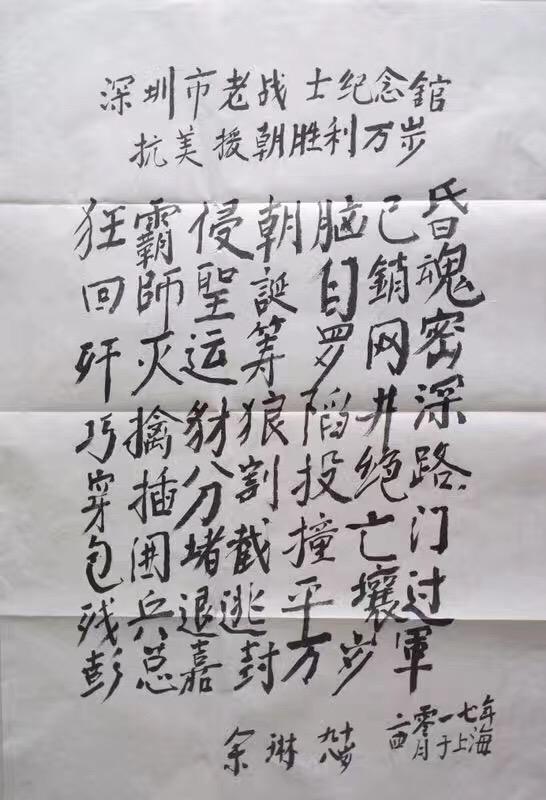 深圳市老战士纪念館
抗美援朝胜利万岁
狂霸侵朝脑已昏
回師聖誕自銷魂
歼灭运筹罗网密
巧擒豺狼陷井深
穿插分割投绝路
包围堵截撞亡门
残兵退逃平壤过
彭总嘉封万岁軍
余琳 九十八岁
二零一七年
四月于上海